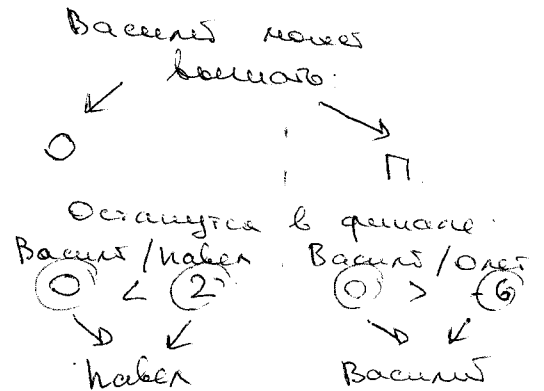 Василий может
выгнать:
О П
Останутся в финале:
Василий/Павел Василий/Олег
0 < 2 0 > -6
Павел Василий